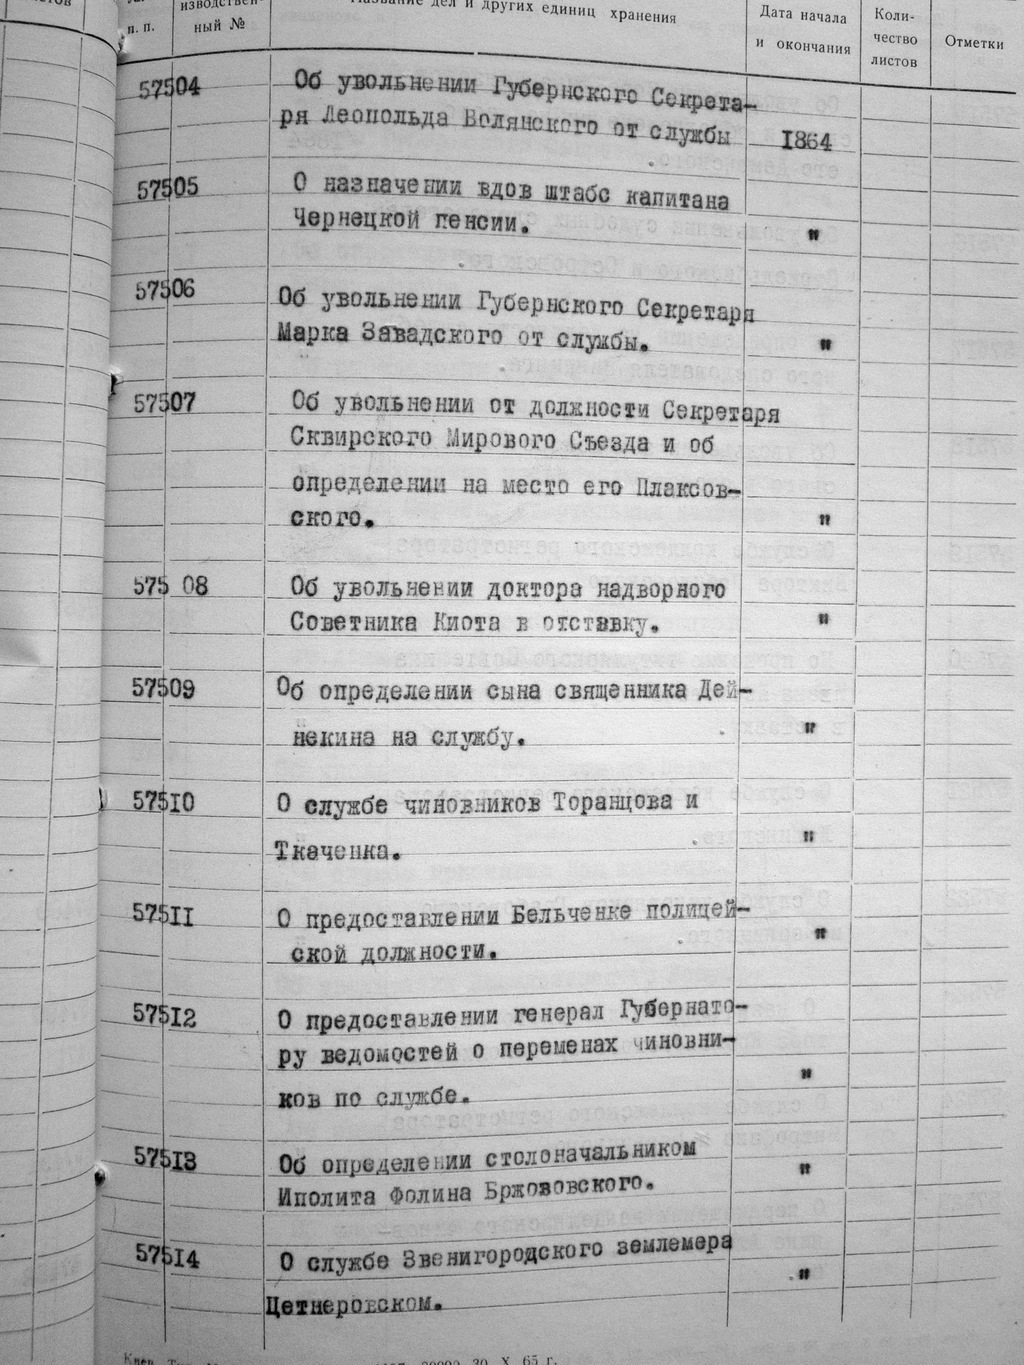 п. п.
ный №
Название дел и других единиц хранения
Дата начала
и окончания
Коли-
чество
листов
Отметки
57504 Об увольнении Губернского Секрета-
ря Леопольда Волянского от службы 1864
57505 О назначении вдов штабс капитана
Чернецкой пенсии. "
57506 Об увольнении Губернского Секретаря
Марка Завадского от службы. "
57507 Об увольнении от должности Секретаря
Сквирского Мирового Съезда и об
определении на место его Плаксов-
ского. "
575 08 Об увольнении доктора надворного
Советника Киота в отставку. "
57509 Об определении сына священника Дей-
некина на службу. "
57510 О службе чиновников Торанцова и
Ткаченка. "
57511 О предоставлении Бельченке полицей-
ской должности. "
57512 О предоставлении генерал Губернато-
ру ведомостей о переменах чиновни-
ков по службе. "
57513 Об определении столоначальником
Иполита Фолина Бржововского. "
57514 О службе Звенигородского землемера
Цетнеровском. "
30 X 65 г.